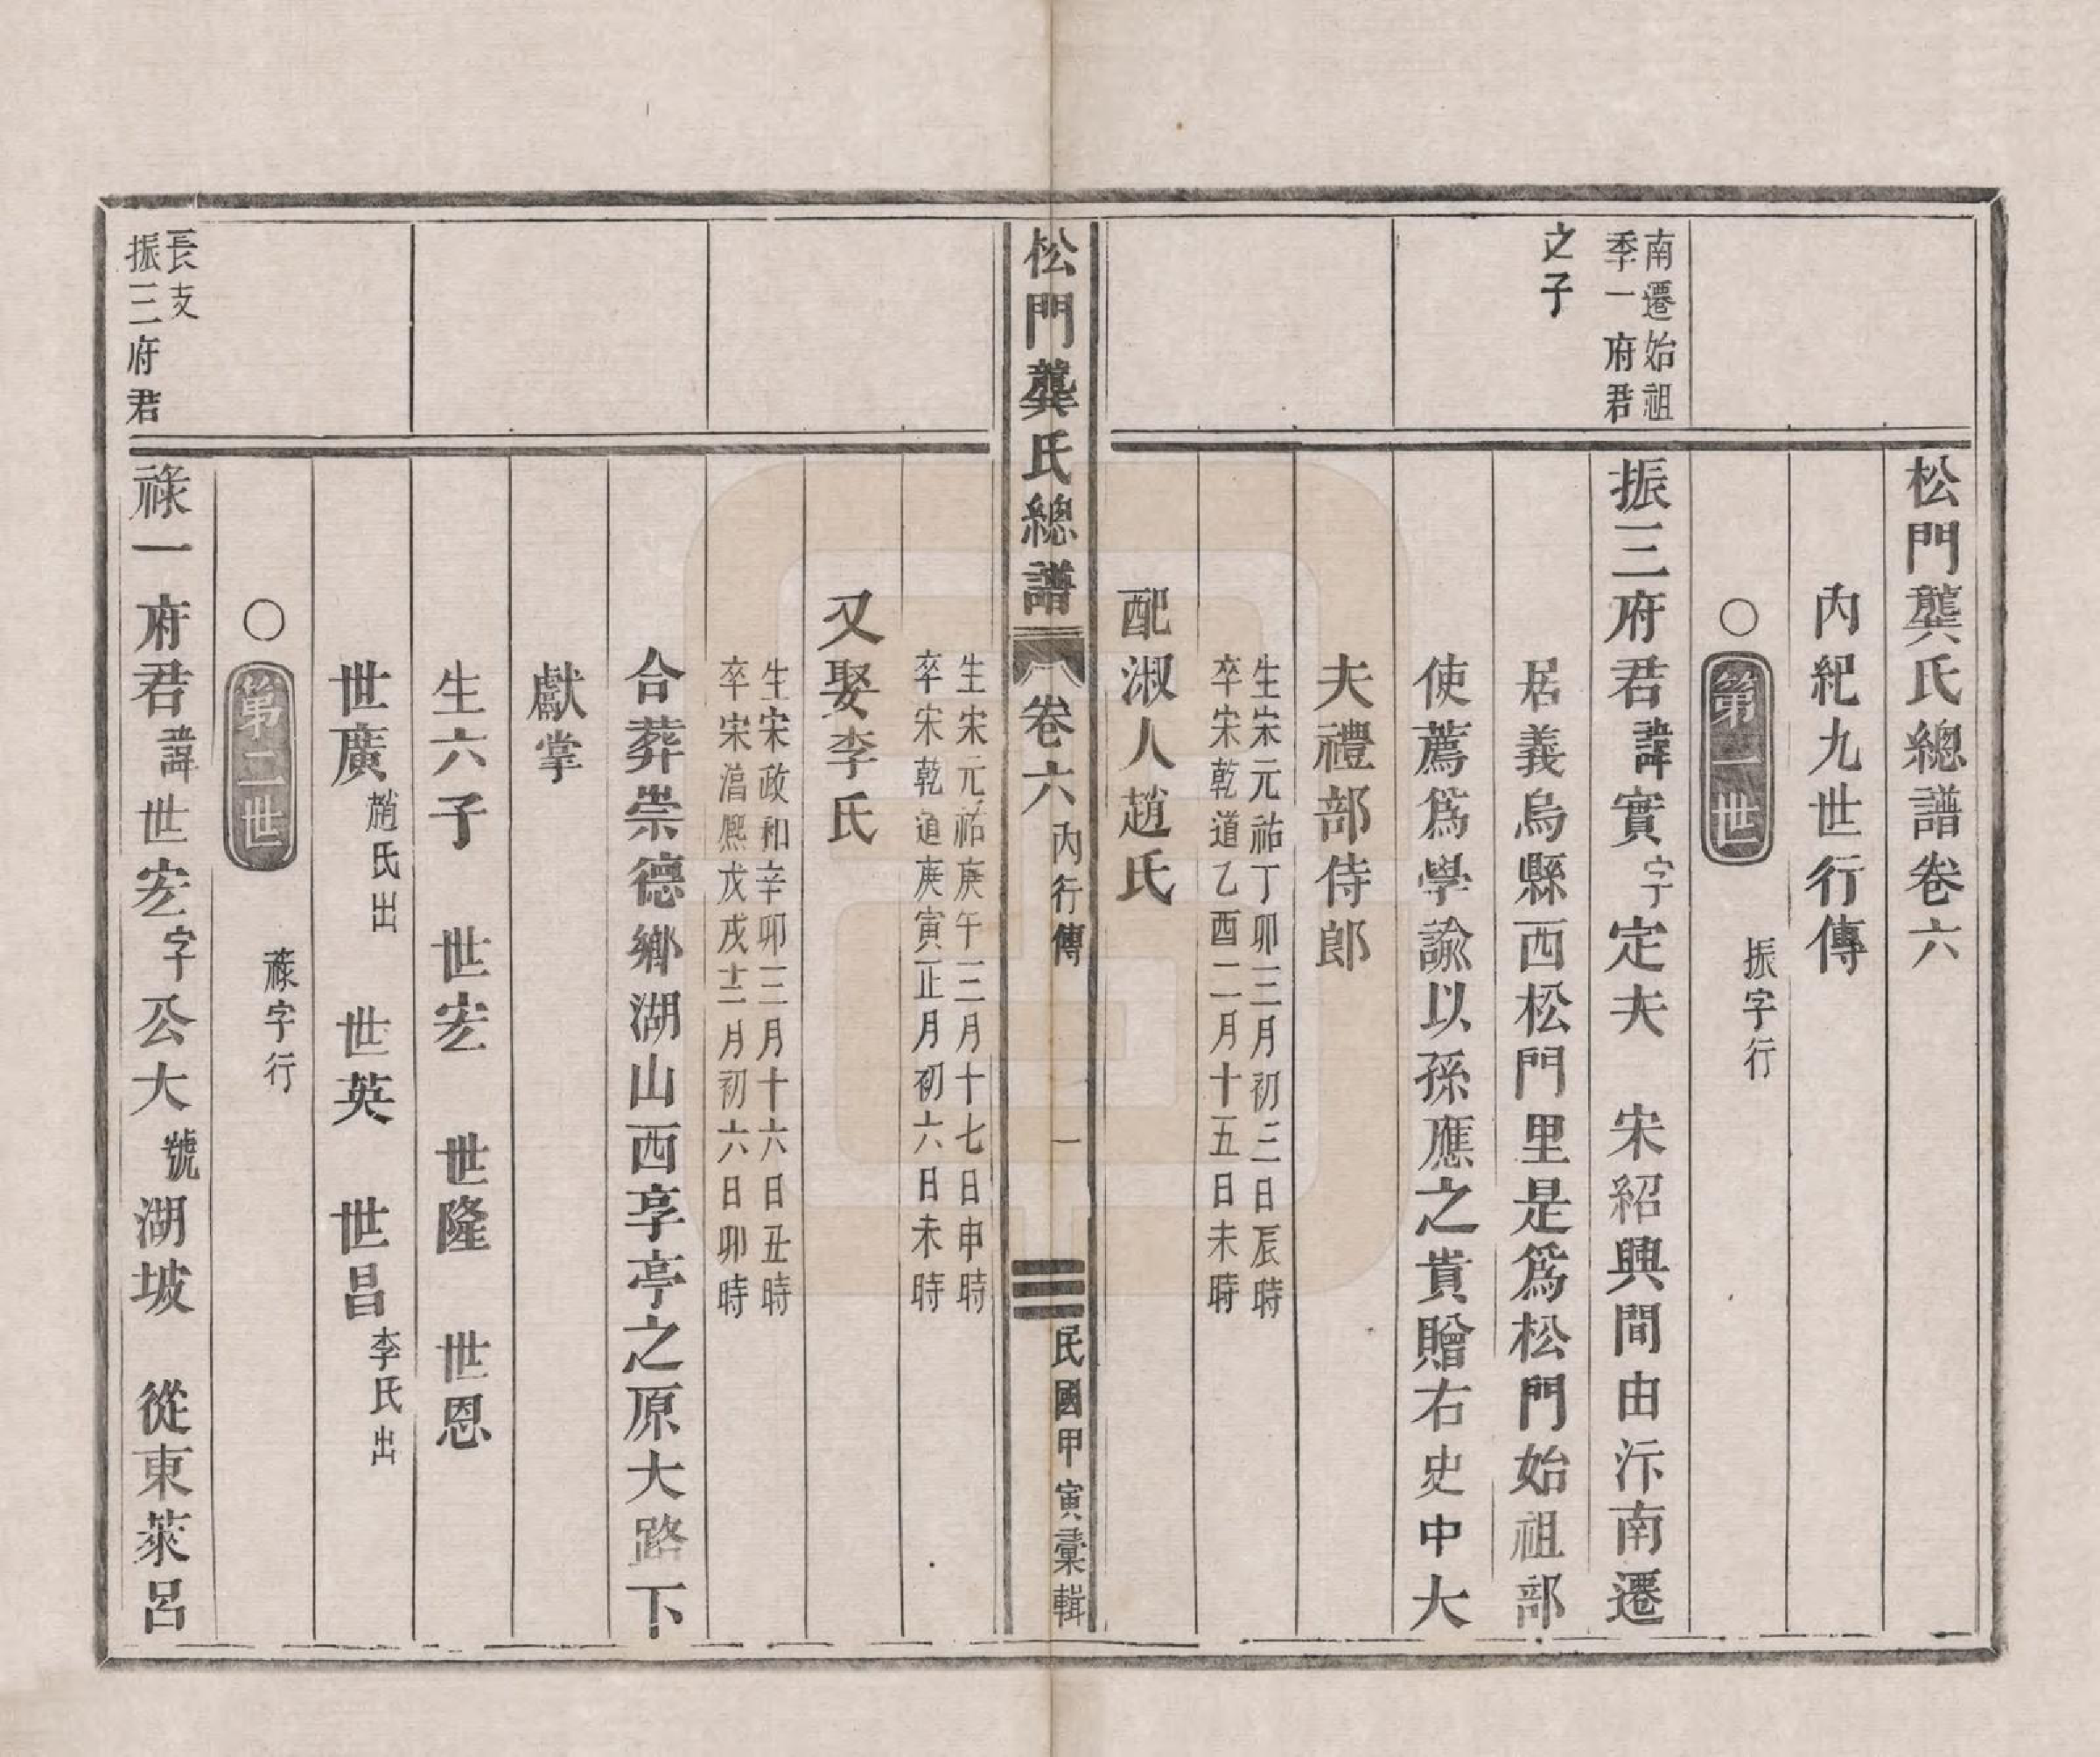 松門龔氏總譜卷六
內紀九世行傳
○第一世　振字行
南遷始祖
季一府君
之子
振三府君諱實字定夫　宋紹興間由汴南遷
居義烏縣西松門里是爲松門始祖部
使薦爲學諭以孫應之貴贈右史中大
夫禮部侍郎
生宋元祐丁卯三月初三日辰時
卒宋乾道乙酉二月十五日未時
配淑人趙氏
松門龔氏總譜　卷六　內行傳　一　民國甲寅彙輯
生宋元祐庚午三月十七日申時
卒宋乾道庚寅正月初六日未時
又娶李氏
生宋政和辛卯三月十六日丑時
卒宋淳熙戊戌十二月初六日卯時
合葬崇德鄉湖山西享亭之原大路下
獻掌
生六子　世宏　世隆　世恩
世廣趙氏出　世英　世昌李氏出
○第二世　祿字行
長支
振三府君
祿一府君諱世宏字公大號湖坡　從東萊呂